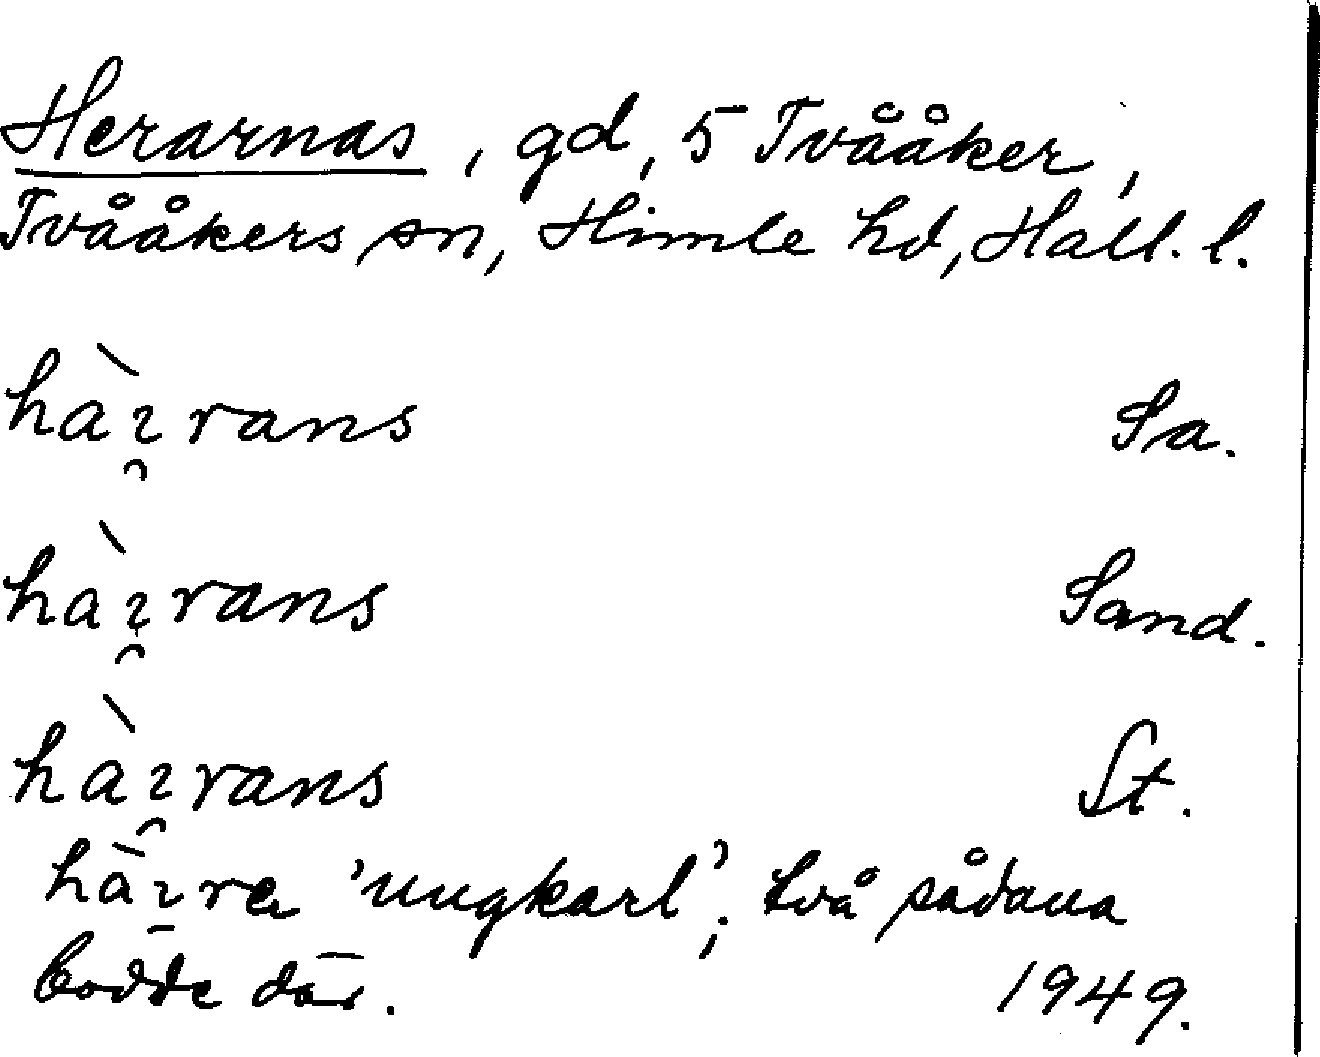 Herarnas, gd, 5 Tvååker,
Tvååkers sn, Himle hd, Hall. l.
hàɿ̯rans Sa.
hàɿ̯rans Sand.
hàɿ̯rans St.
hàɿ̯ra 'ungkarl'; två sådana
bodde där. 1949.